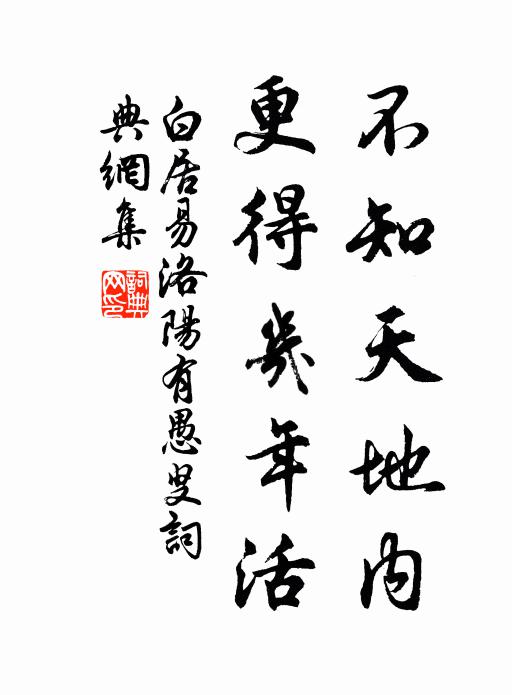 不知天地内
更得幾年活
白居易洛陽有愚叟詞
典網集
詞典网印